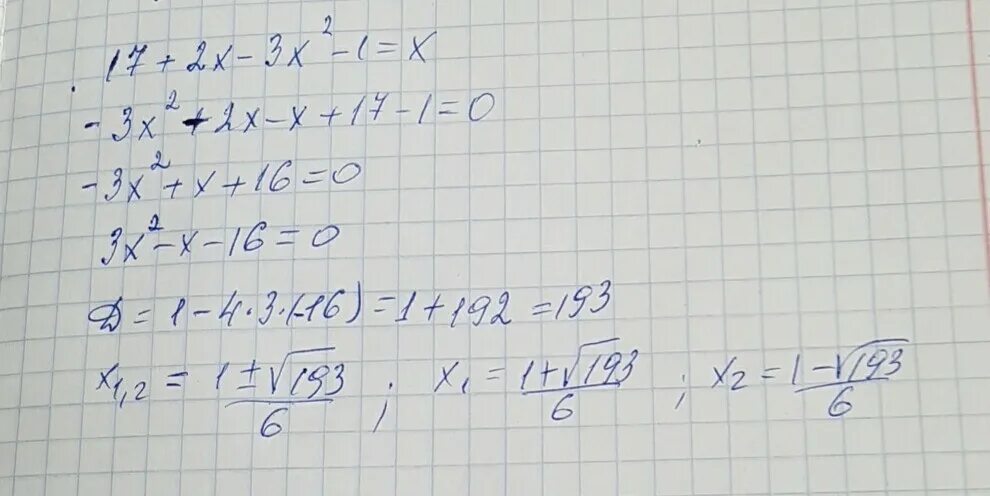 17 + 2x - 3x² - 1 = x
- 3x² + 2x - x + 17 - 1 = 0
- 3x² + x + 16 = 0
3x² - x - 16 = 0
D = 1 - 4·3·(-16) = 1 + 192 = 193
x₁,₂ = (1 ± √193)/6 ; x₁ = (1 + √193)/6 ; x₂ = (1 - √193)/6